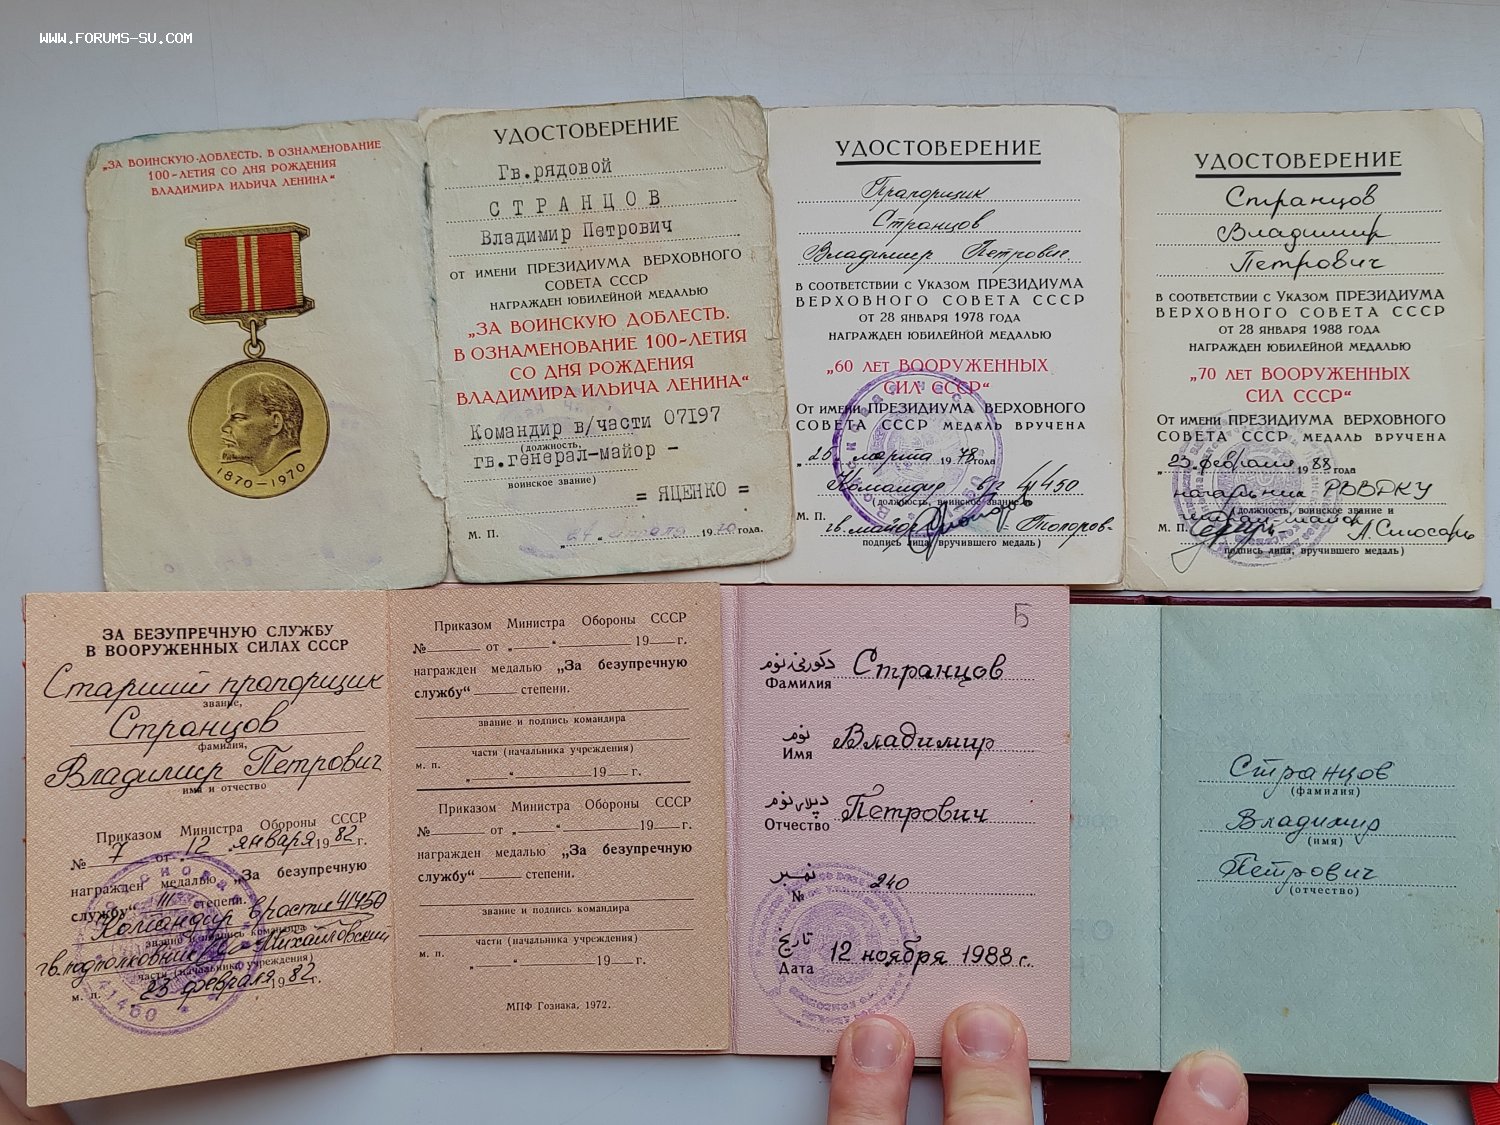 WWW.FORUMS-SU.COM
„ЗА ВОИНСКУЮ ДОБЛЕСТЬ. В ОЗНАМЕНОВАНИЕ
100-ЛЕТИЯ СО ДНЯ РОЖДЕНИЯ
ВЛАДИМИРА ИЛЬИЧА ЛЕНИНА“
1870-1970
УДОСТОВЕРЕНИЕ
Гв.рядовой
СТРАНЦОВ
Владимир Петрович
ОТ ИМЕНИ ПРЕЗИДИУМА ВЕРХОВНОГО
СОВЕТА СССР
НАГРАЖДЕН ЮБИЛЕЙНОЙ МЕДАЛЬЮ
„ЗА ВОИНСКУЮ ДОБЛЕСТЬ.
В ОЗНАМЕНОВАНИЕ 100-ЛЕТИЯ
СО ДНЯ РОЖДЕНИЯ
ВЛАДИМИРА ИЛЬИЧА ЛЕНИНА“
Командир в/части 07197
(должность,
гв.генерал-майор -
воинское звание)
= ЯЦЕНКО =
М. П. 1970 года.
УДОСТОВЕРЕНИЕ
Прапорщик
Странцов
Владимир Петрович
В СООТВЕТСТВИИ С УКАЗОМ ПРЕЗИДИУМА
ВЕРХОВНОГО СОВЕТА СССР
ОТ 28 ЯНВАРЯ 1978 ГОДА
НАГРАЖДЕН ЮБИЛЕЙНОЙ МЕДАЛЬЮ
„60 ЛЕТ ВООРУЖЕННЫХ
СИЛ СССР“
ОТ ИМЕНИ ПРЕЗИДИУМА ВЕРХОВНОГО
СОВЕТА СССР МЕДАЛЬ ВРУЧЕНА
„25“ марта 1978 года
Командир в/ч 41450
(должность, воинское звание
М. П. гв. майор =Топоров-
подпись лица, вручившего медаль)
УДОСТОВЕРЕНИЕ
Странцов
Владимир
Петрович
В СООТВЕТСТВИИ С УКАЗОМ ПРЕЗИДИУМА
ВЕРХОВНОГО СОВЕТА СССР
ОТ 28 ЯНВАРЯ 1988 ГОДА
НАГРАЖДЕН ЮБИЛЕЙНОЙ МЕДАЛЬЮ
„70 ЛЕТ ВООРУЖЕННЫХ
СИЛ СССР“
ОТ ИМЕНИ ПРЕЗИДИУМА ВЕРХОВНОГО
СОВЕТА СССР МЕДАЛЬ ВРУЧЕНА
„23“ февраля 1988 года
начальник РВВДКУ
(должность, воинское звание и
М. П. А.Слюсарь
подпись лица, вручившего медаль)
ЗА БЕЗУПРЕЧНУЮ СЛУЖБУ
В ВООРУЖЕННЫХ СИЛАХ СССР
Старший прапорщик
звание,
Странцов
фамилия,
Владимир Петрович
имя и отчество
Приказом Министра Обороны СССР
№ 7 от „12“ января 1982 г.
награжден медалью „За безупречную
службу“ III степени.
Командир в/части 41450
звание и подпись командира
гв. подполковник Михайловский
части (начальника учреждения)
м. п. 23 февраля 1982 г.
41450
Приказом Министра Обороны СССР
№ от „ “ 19 г.
награжден медалью „За безупречную
службу“ степени.
звание и подпись командира
части (начальника учреждения)
м. п.
„ “ 19 г.
Приказом Министра Обороны СССР
№ от „ “ 19 г.
награжден медалью „За безупречную
службу“ степени.
звание и подпись командира
части (начальника учреждения)
м. п.
„ “ 19 г.
МПФ Гознака. 1972.
Б
دکورنۍ نوم
Фамилия Странцов
نوم
Имя Владимир
دپلار نوم
Отчество Петрович
نمبر
№ 240
تاریخ
Дата 12 ноября 1988 г.
Странцов
(фамилия)
Владимир
(имя)
Петрович
(отчество)